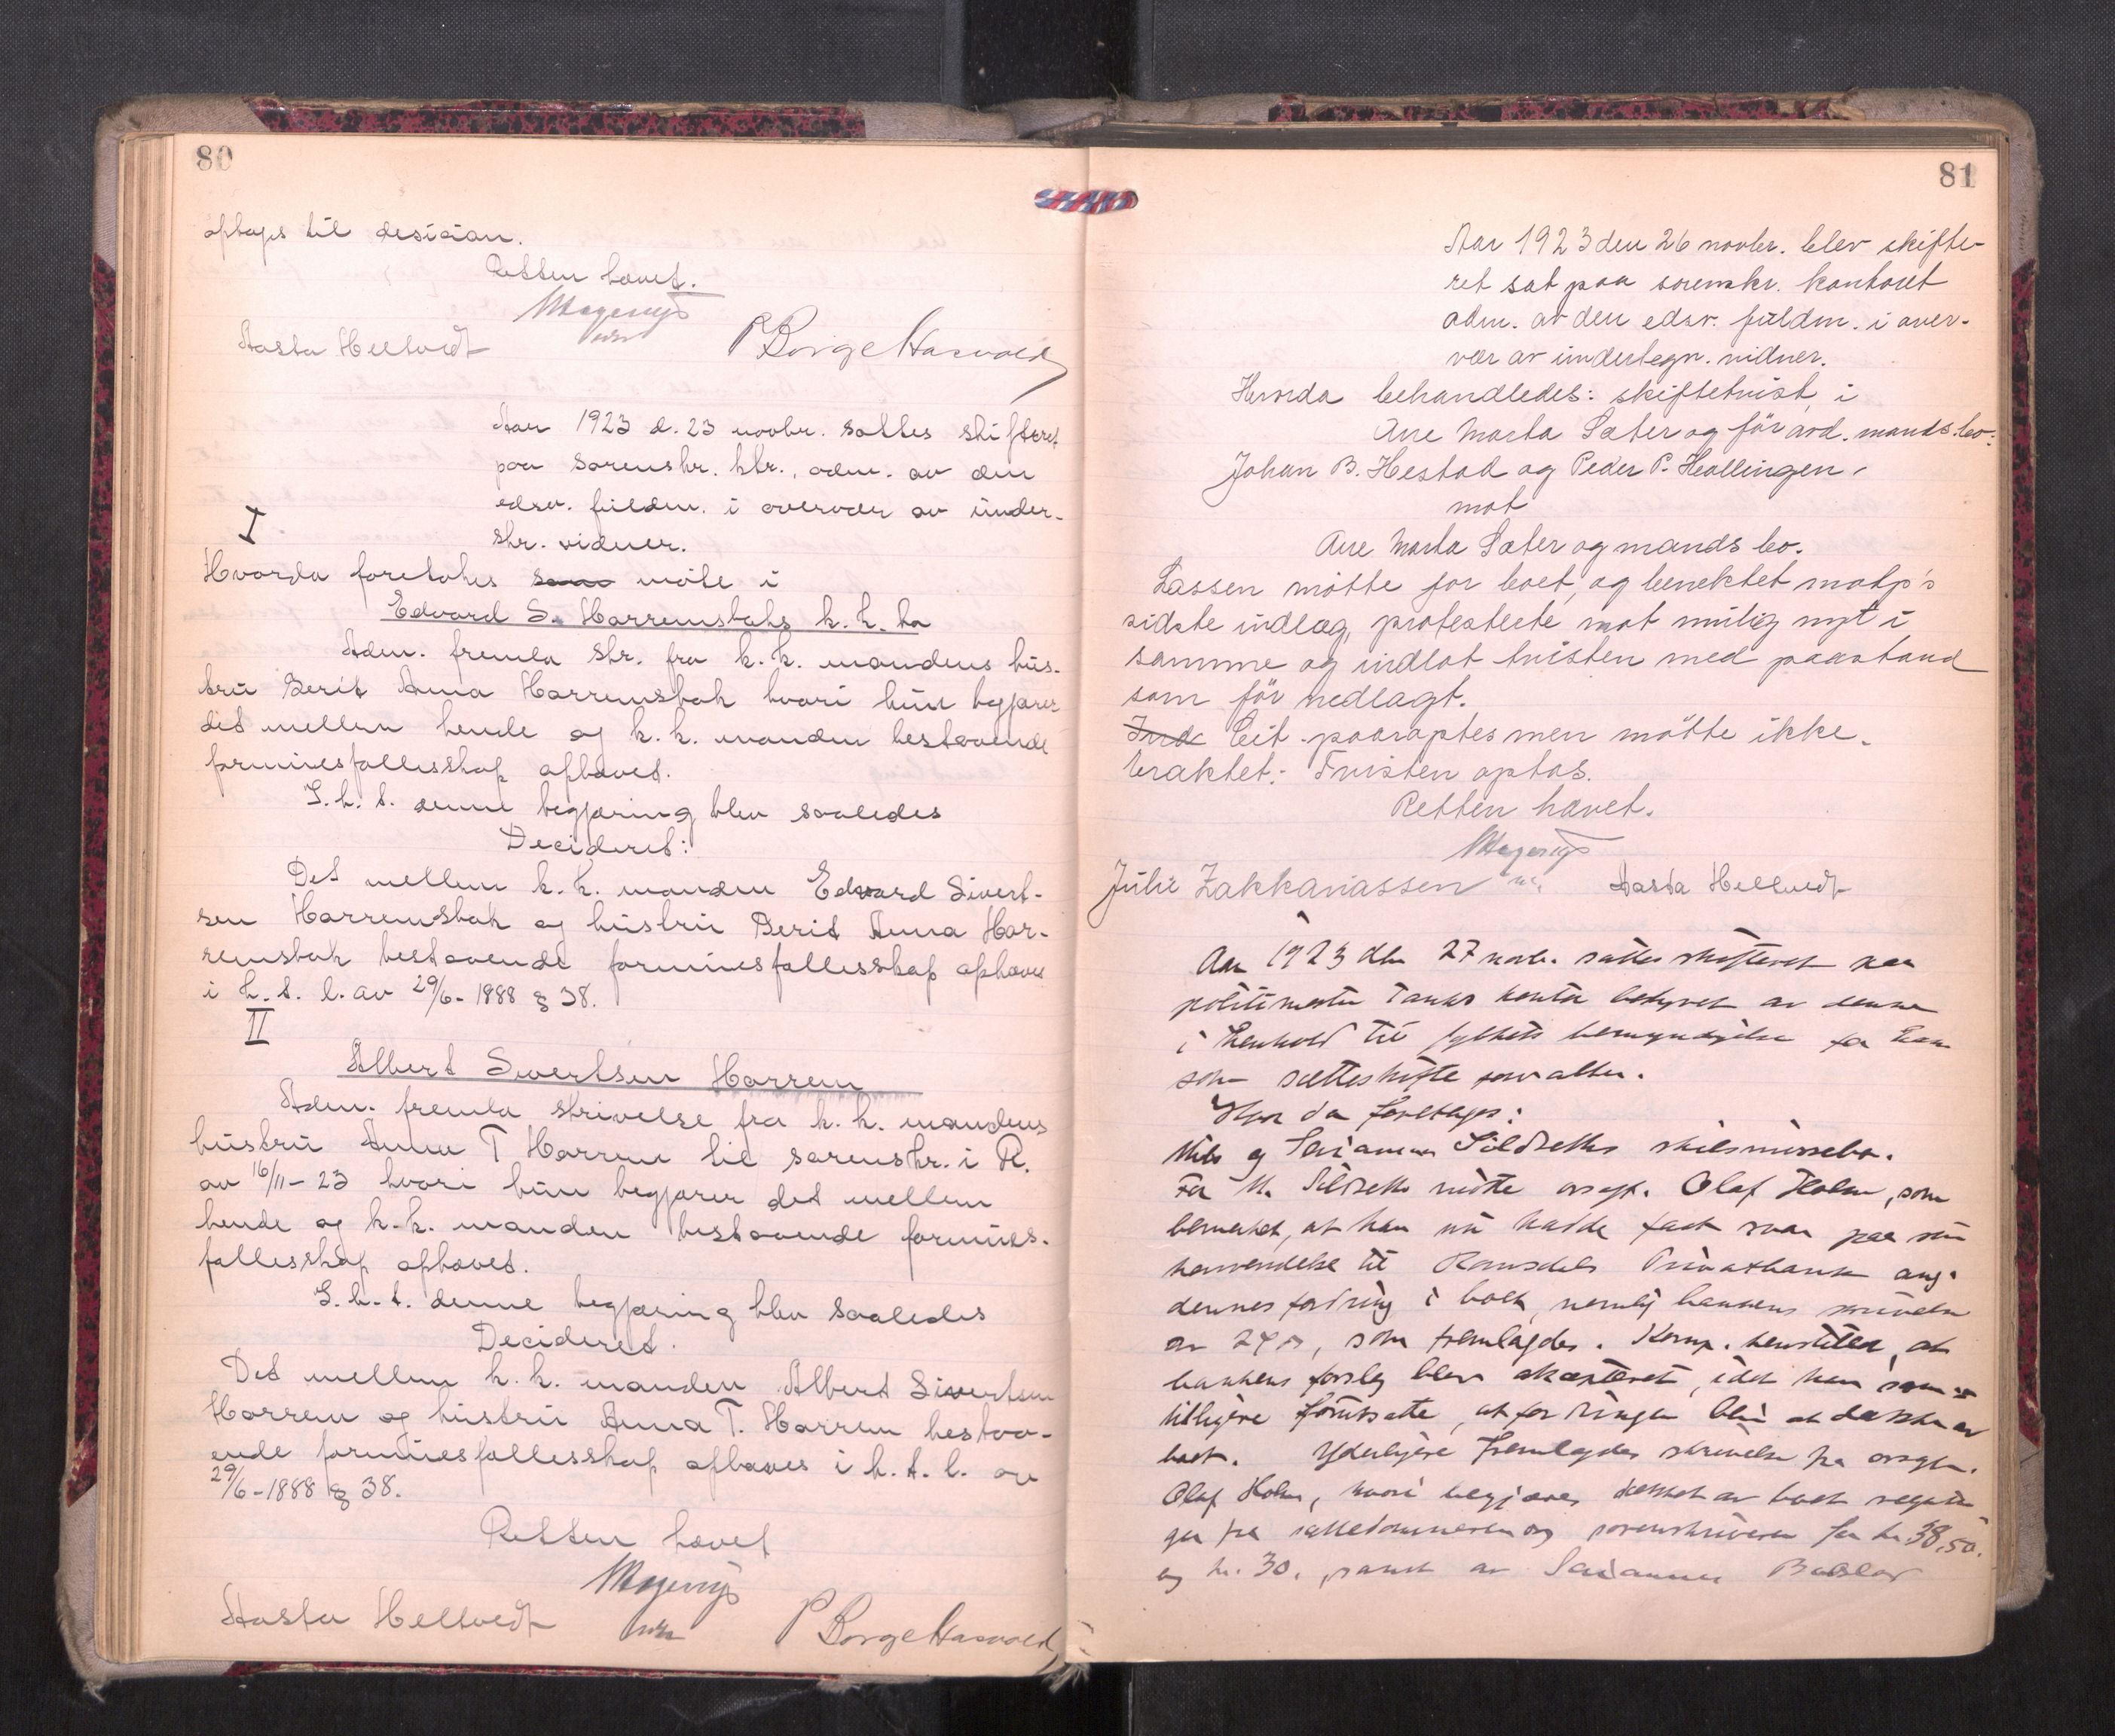 80
optages til desision.
Retten hævet.
Aasta Helltvedt P Borge Hasvold
Aar 1923 d. 23 novbr. sattes skifteret
paa sorenskr. ktr., adm. av den
edsv. fuldm. i overvær av under-
skr. vidner.
I
Hvorda foretokes møte i
Edvard S. Harremsbaks k. k. bo
Adm. fremla skr. fra k. k. mandens hus-
tru Berit Anna Harremsbak hvori hun begjærer
det mellem hende og k. k. manden bestaaende
formuesfællesskap ophævet.
I. h. t. denne begjæring blev saaledes
Decideret:
Det mellem k. k. manden Edvard Sivert-
sen Harremsbak og hustru Berit Anna Har-
remsbak bestaaende formuesfællesskap ophæves
i h. t. l. av 29/6-1888 § 38.
II
Albert Sivertsen Harrem
Adm. fremla skrivelse fra k. k. mandens
hustru Anna T Harrem til sorenskr. i R.
av 16/11-23 hvori hun begjærer det mellem
hende og k. k. manden bestaaende formues-
fællesskap ophævet.
I. h. t. denne begjæring blev saaledes
Decideret.
Det mellem k. k. manden Albert Sivertsen
Harrem og hustru Anna T. Harrem bestaa-
ende formuesfællesskap ophæves i h. t. l. av
29/6-1888 § 38.
Retten hævet
Aasta Helltvedt P Borge Hasvold
81
Aar 1923 den 26 novbr. blev skifte-
ret sat paa sorenskr. kontoret
adm. av den edsv. fuldm. i over-
vær av undertegn. vidner.
Hvorda behandledes: skiftetvist i
Ane Marta Sæter og før avd. mands bo:
Johan B. Hestad og Peder P. Hollingen,
mot
Ane Marta Sæter og mands bo.
Lassen møtte for boet, og benektet motp's
sidste indlæg, protesterte mot mulig nyt i
samme og indlot tvisten med paastand
som før nedlagt.
Cit. paaraaptes men møtte ikke.
Tvisten optas.
Retten hævet.
Julie Zakkariassen Aasta Helltvedt
Aar 1923 den 27 novbr. sattes skifteret paa
politimester Tanks kontor bestyret av denne
i henhold til fylkets bemyndigelse for ham
som sætteskifteforvalter.
Hvor da foretages:
Nils og Susanna Sildseths skilsmissebo.
For N. Sildseth møtte orsagf. Olaf Holm, som
bemerket, at han nu hadde faat svar paa sin
henvendelse til Romsdals Privatbank ang.
dennes fordring i boet, nemlig bankens skrivelse
av 24 ds, som fremlagdes. Komp. henstillet, at
bankens forslag blev akseptert, idet han som
tidligere forutsatte, at fordringen blir at dække av
boet. Yderligere fremlagdes skrivelse fra orsagf.
Olaf Holm, hvori begjæres dækket av boet regnin-
ger fra sættedommeren og sorenskriveren for kr. 38,50.
og kr. 30, samt av Susanna